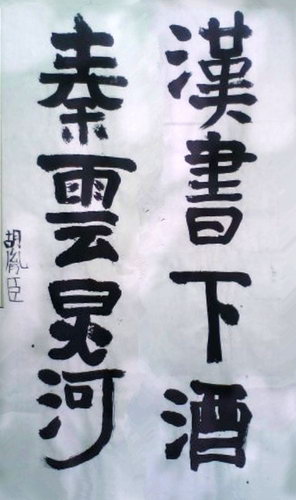 漢書下酒
秦雲河
胡胤臣